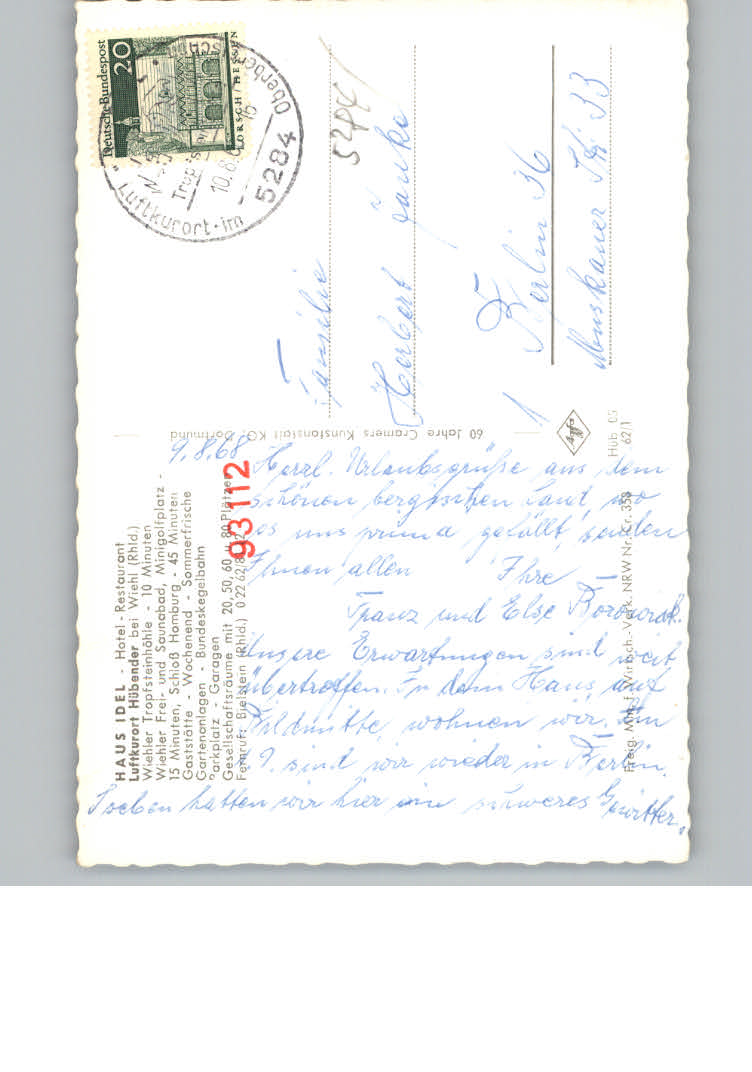 HAUS IDEL - Hotel - Restaurant
Luftkurort Hübender bei Wiehl (Rhld.)
Wiehler Tropfsteinhöhle - 10 Minuten
Wiehler Frei- und Saunabad, Minigolfplatz -
15 Minuten, Schloß Homburg - 45 Minuten
Gaststätte - Wochenend - Sommerfrische
Gartenanlagen - Bundeskegelbahn
Parkplatz - Garagen
Gesellschaftsräume mit 20, 50, 60 u. 80 Plätzen
Fernruf: Bielstein (Rhld.) 0 22 62/8
93 112
9.8.68
Herzl. Urlaubsgrüße aus dem
schönen bergischen Land, wo
es uns prima gefällt, senden
Ihnen allen Ihre
Franz und Else
Unsere Erwartungen sind weit
übertroffen. In dem Haus, auf
Bildmitte, wohnen wir. Am
9. sind wir wieder in Berlin.
Soeben hatten wir hier ein schweres Gewitter.
60 Jahre Cramers Kunstanstalt KG, Dortmund
Agfa
Hüb
62/1
Freig. Min. f. Wirtsch.-Verk. NRW Nr. Cr. 358
Deutsche Bundespost
20
LORSCH / HESSEN
5284
Luftkurort · im
Oberberg
10.8.6
5284
Familie
Herbert Janke
1 Berlin 36
Muskauer Str. 33